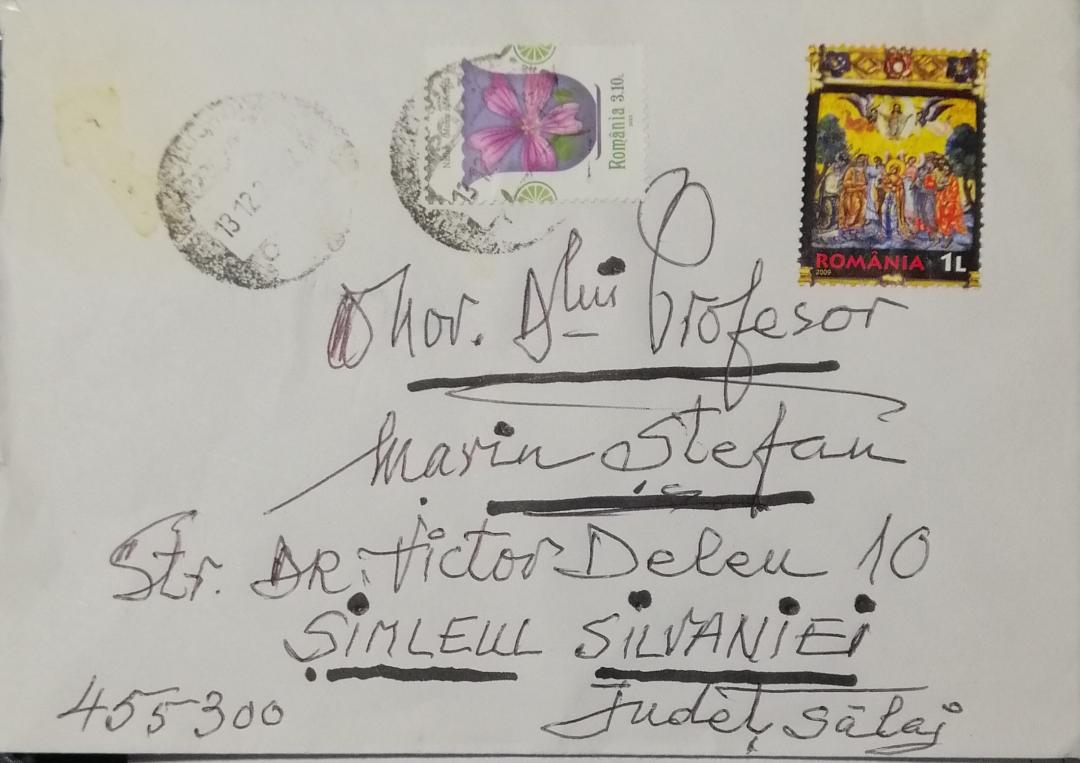 13 12
România 3.10.
ROMÂNIA 1L
2009
Onor. Dlui Profesor
Marin Ștefan
Str. DR. Victor Deleu 10
ȘIMLEUL SILVANIEI
455300
Județ, Sălaj